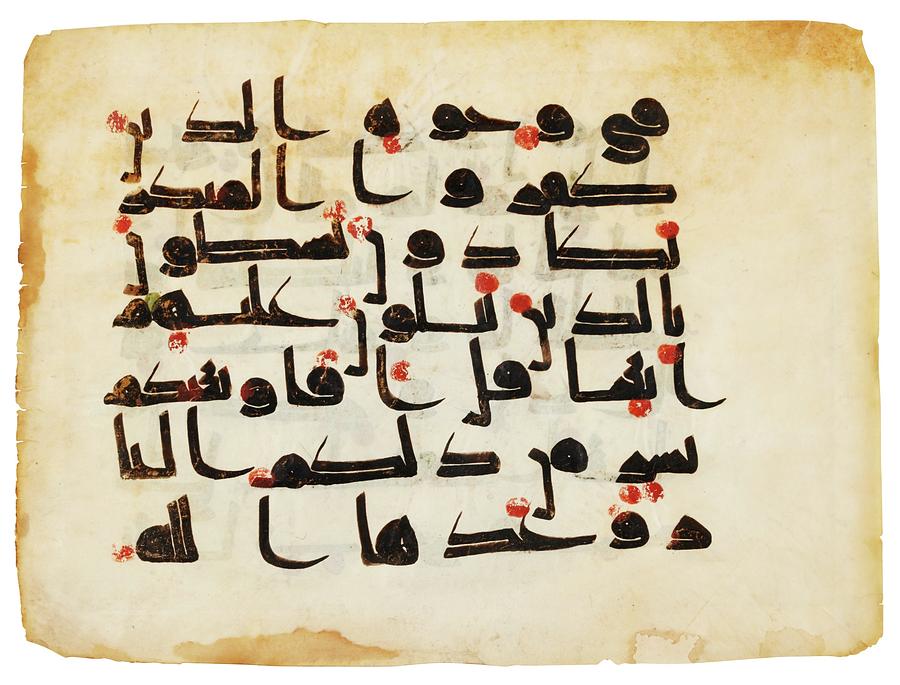 في وجوه الذين
كفروا المنكر
يكادون يسطون
بالذين يتلون عليهم
ايتنا قل افانبئكم
بشر من ذلكم النا
ر وعدها الله